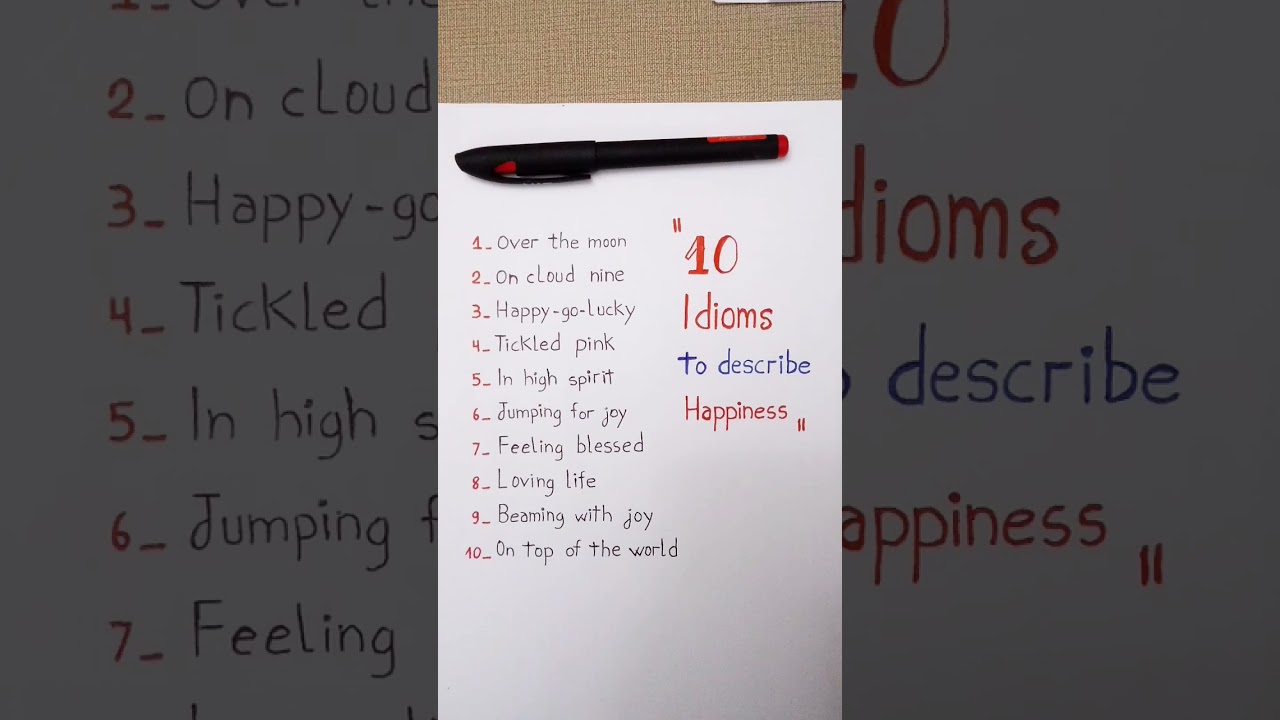 1_ Over the moon
2_ On cloud nine
3_ Happy-go-lucky
4_ Tickled pink
5_ In high spirit
6_ Jumping for joy
7_ Feeling blessed
8_ Loving life
9_ Beaming with joy
10_ On top of the world
"10
Idioms
to describe
Happiness"